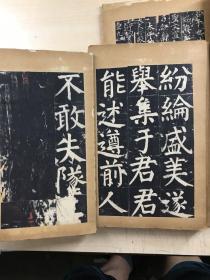 紛綸盛美遂
舉集于君君
能述遵前人
不敢失隊